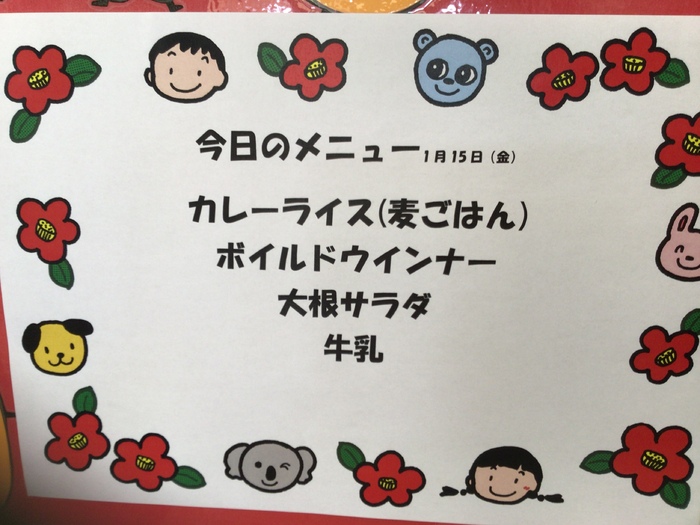 今日のメニュー1月15日(金)
カレーライス(麦ごはん)
ボイルドウインナー
大根サラダ
牛乳